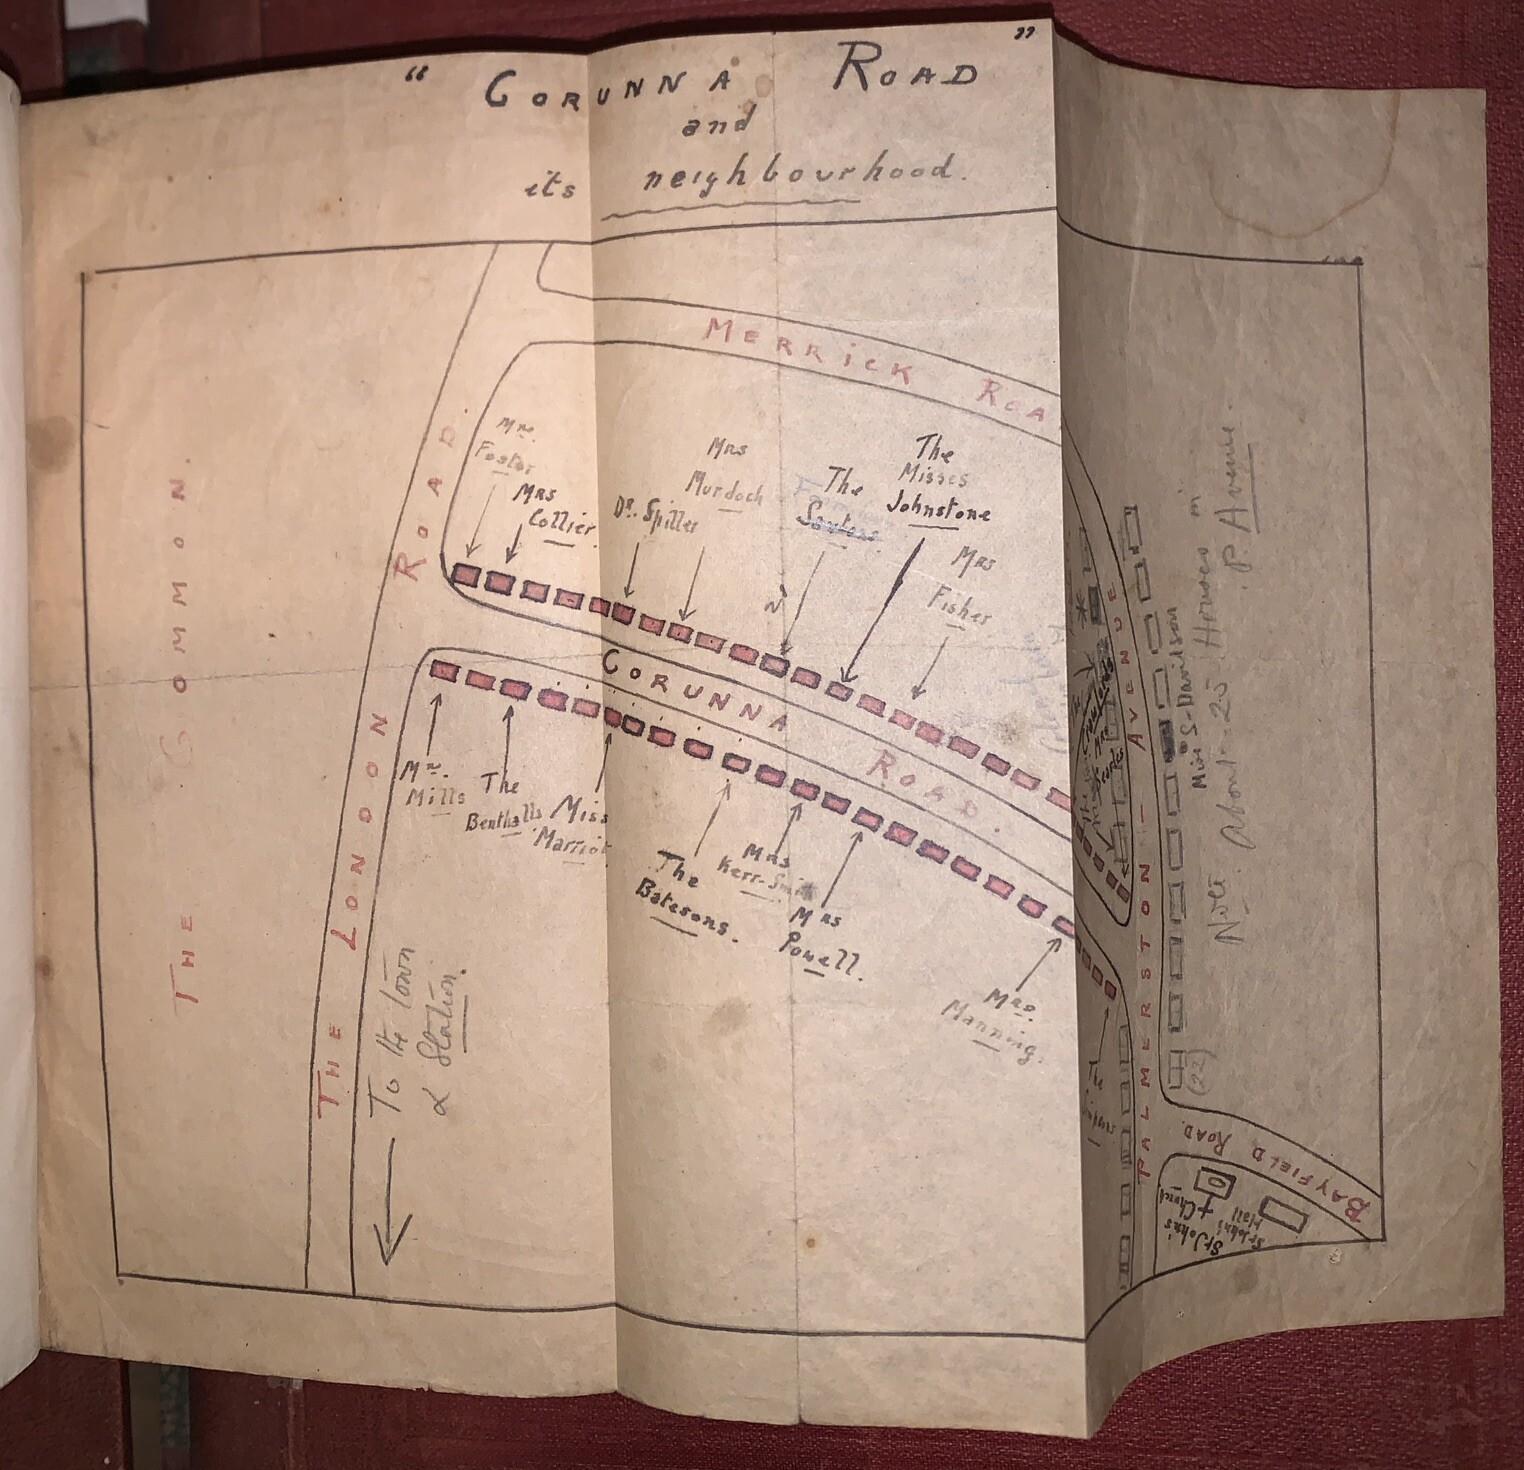 " CORUNNA ROAD "
and
its neighbourhood.
MERRICK ROA
THE COMMON
THE LONDON ROAD.
Mrs.
Foster
MRS
Collier.
Dr. Spiller
Mrs
Murdoch
The
The
Misses
Johnstone
MRS
Fisher
CORUNNA ROAD.
Mills
The
Benthalls
Miss
Marriot
The
Batesons.
Mrs
Kerr-Smith
MRS
Powell.
Mrs.
Manning.
To the town
& Station.
PALMERSTON AVENUE
Miss S-Davidson
Note. about 25 Houses in
P. Avenue.
(22)
BAYFIELD ROAD.
St John's
Church
St John's
Hall